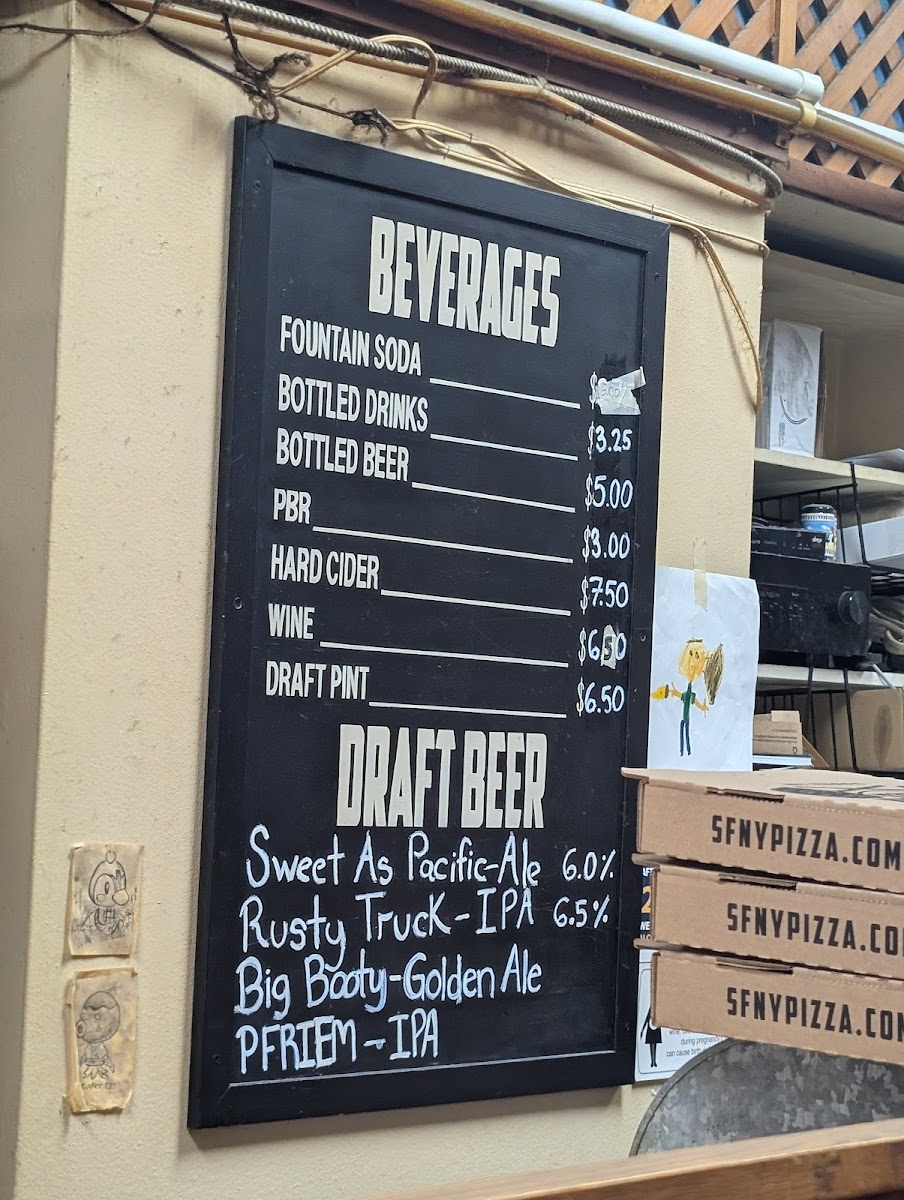 BEVERAGES
FOUNTAIN SODA
BOTTLED DRINKS $3.25
BOTTLED BEER $5.00
PBR $3.00
HARD CIDER $7.50
WINE $6.50
DRAFT PINT $6.50
DRAFT BEER
Sweet As Pacific-Ale 6.0%
Rusty Truck-IPA 6.5%
Big Booty-Golden Ale
PFRIEM-IPA
SFNYPIZZA.COM
SFNYPIZZA.CO
SFNYPIZZA.COM
during pregnancy
can cause birth